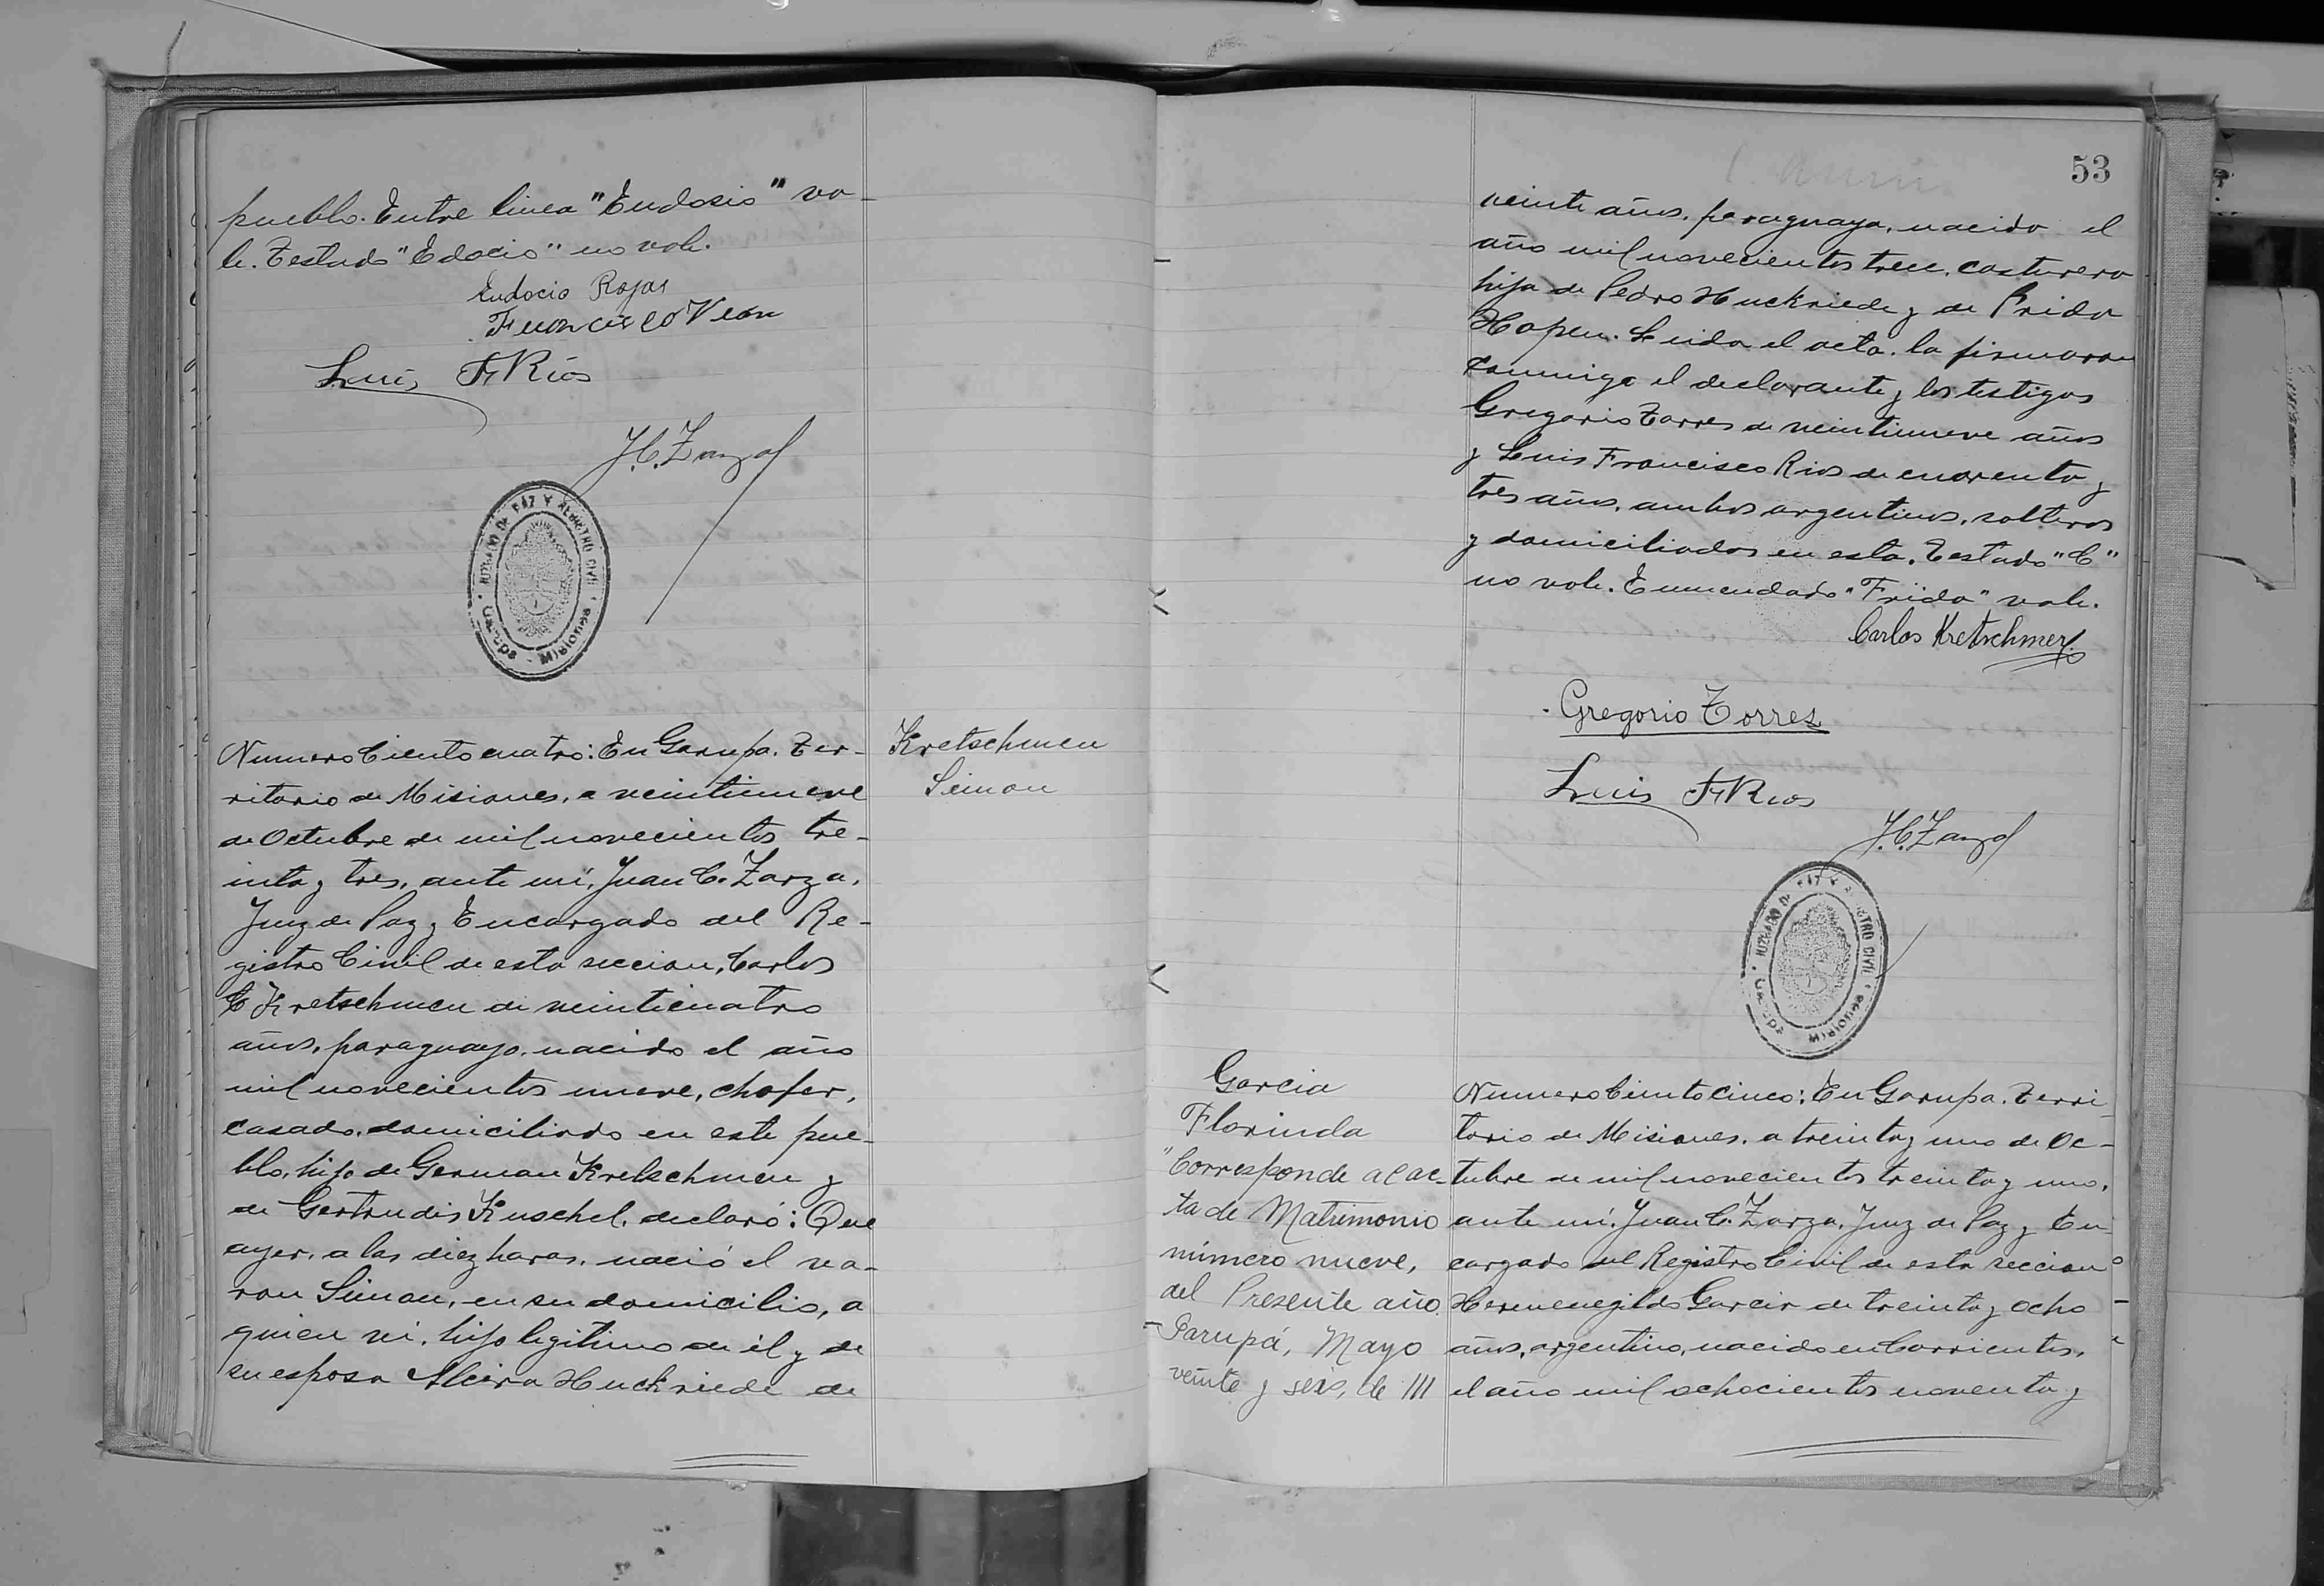 pueblo. Entre linea "Eudosio" va-
le. Testado "Edocio" no vale.
Eudocio Rojas
Francisco Vean
Luis F. Rios
J.C. Zarza
JUZGADO DE PAZ Y REGISTRO CIVIL
Garupá - Misiones
Numero Ciento cuatro: En Garupa. Ter-
ritorio de Misiones, a veintinueve
de Octubre de mil novecientos tre-
inta y tres, ante mí, Juan C. Zarza,
Juez de Paz y Encargado del Re-
gistro Civil de esta seccion, Carlos
C Kretschmen de veinticuatro
años, paraguayo, nacido el año
mil novecientos nueve, chofer,
casado, domiciliado en este pue-
blo, hijo de German Kretschmen y
de Gertrudis Kuschel, declaró: Que
ayer, a las diez horas, nació el va-
ron Simon, en su domicilio, a
quien ví, hijo legitimo de él y de
su esposa Alcira Huckriede de
Kretschmen
Simon
53
veinte años, paraguaya, nacida el
año mil novecientos trece, costurera
hija de Pedro Huckriede y de Frida
Hopen. Leida el acta, la firmaron
conmigo el declarante y los testigos
Gregorio Torres de veintinueve años
y Luis Francisco Rios de cuarenta y
tres años, ambos argentinos, solteros
y domiciliados en esta. Testado "C"
no vale. Enmendado "Frida" vale.
Carlos Kretschmer
Gregorio Torres
Luis F. Rios
J.C. Zarza
JUZGADO DE PAZ Y REGISTRO CIVIL
Garupá - Misiones
Garcia
Florinda
"Corresponde al ac-
ta de Matrimonio
número nueve,
del Presente año.
Garupá, Mayo
veinte y seis, de 111
Numero Ciento cinco: En Garupa. Terri-
torio de Misiones, a treinta y uno de Oc-
tubre de mil novecientos treinta y uno,
ante mí, Juan C. Zarza, Juez de Paz y En-
cargado del Registro Civil de esta seccion
Hermenegildo Garcia de treinta y ocho
años, argentino, nacido en Corrientes,
el año mil ochocientos noventa y